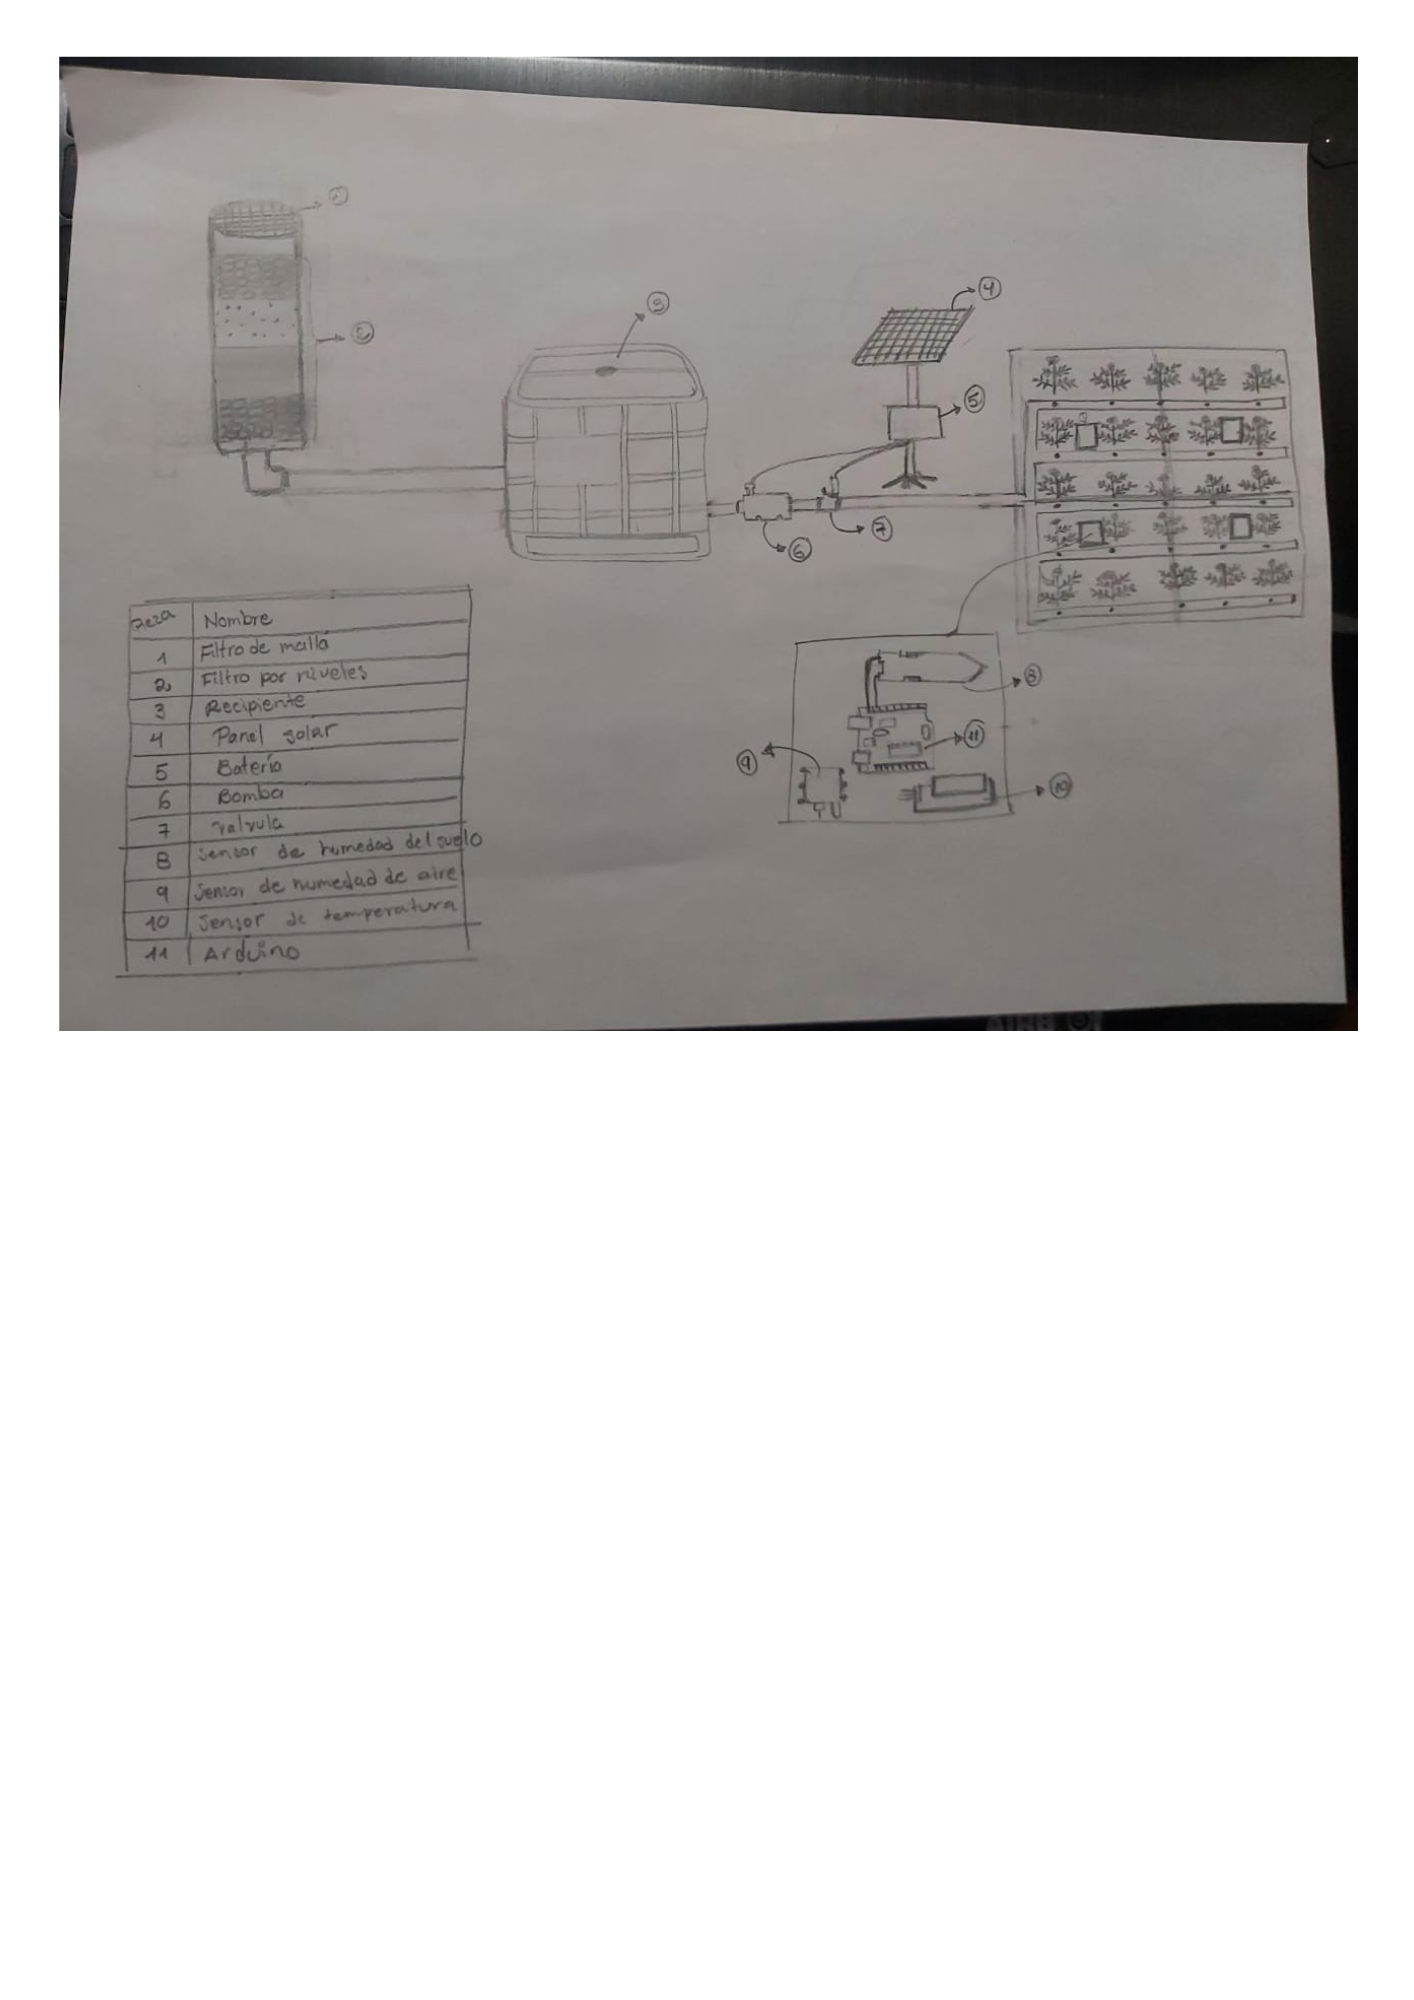 1
2
3
4
5
6
7
8
9
11
10
Pieza Nombre
1 Filtro de malla
2 Filtro por niveles
3 Recipiente
4 Panel solar
5 Batería
6 Bomba
7 valvula
8 Sensor de humedad del suelo
9 Sensor de humedad de aire
10 Sensor de temperatura
11 Arduino